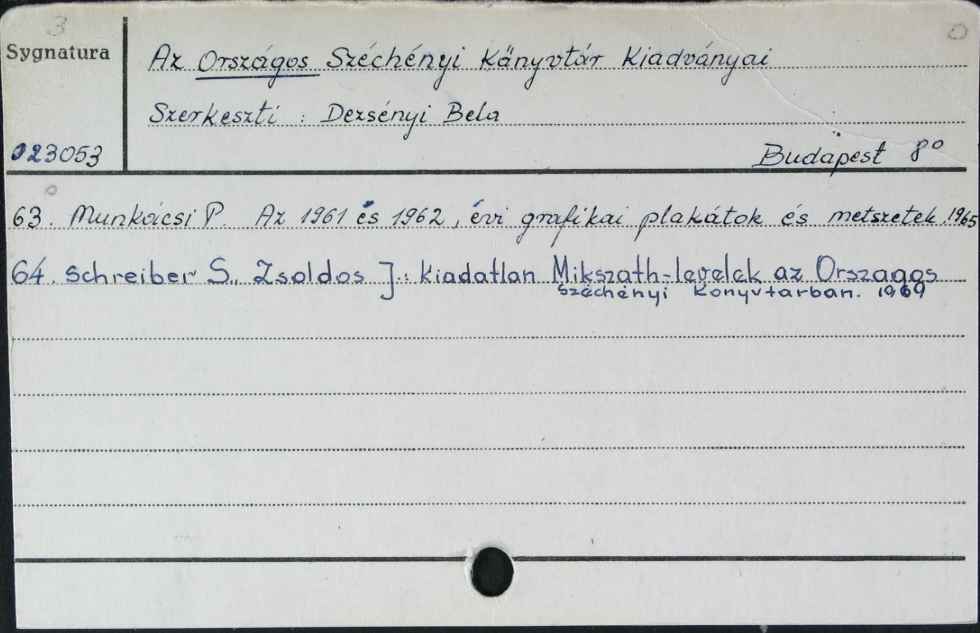 3
Sygnatura
Az Országos Széchényi Könyvtár Kiadványai
Szerkeszti : Dezsényi Bela
023053
Budapest 8°
63. Munkácsi P. Az 1961 és 1962, évi grafikai plakátok és metszetek. 1965
64. Schreiber S., Zsoldos J.: Kiadatlan Mikszath-levelek az Orszagos
Széchényi Könyvtarban. 1969